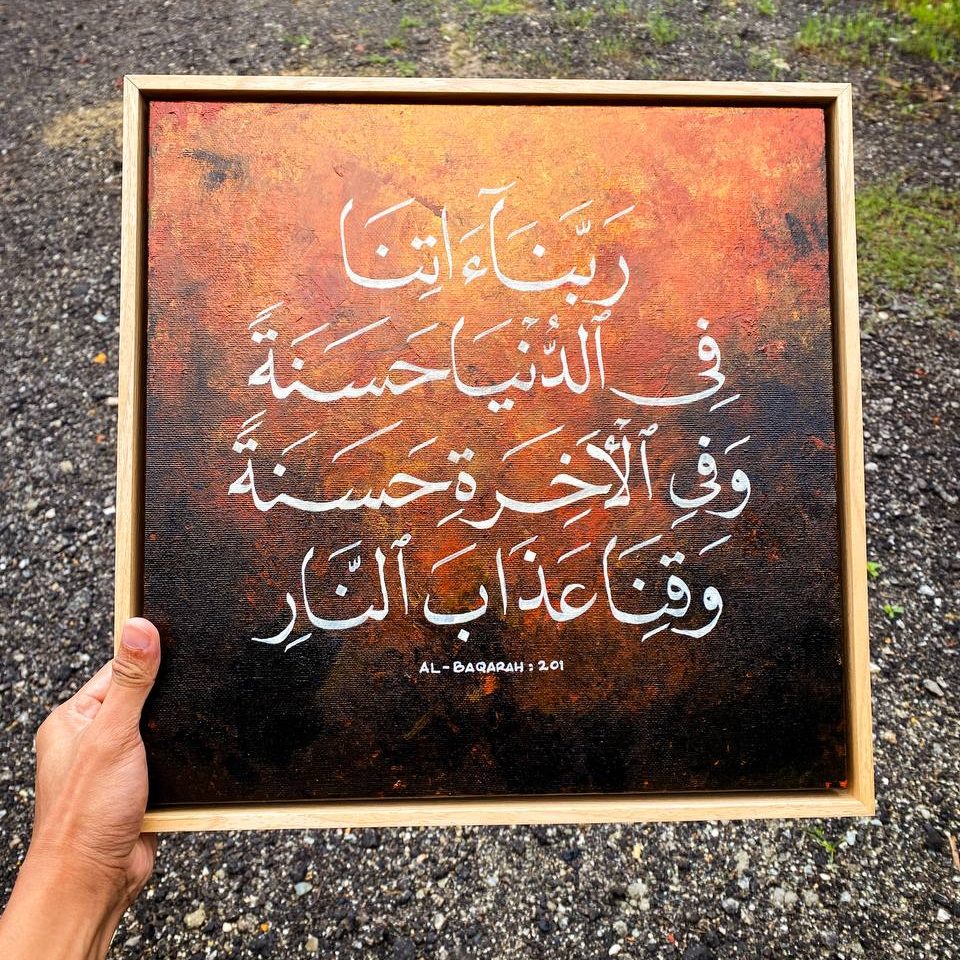 رَبَّنَآ ءَاتِنَا
فِى ٱلدُّنْيَا حَسَنَةً
وَفِي ٱلْأَخِرَةِ حَسَنَةً
وَقِنَا عَذَابَ ٱلنَّارِ
AL-BAQARAH : 201